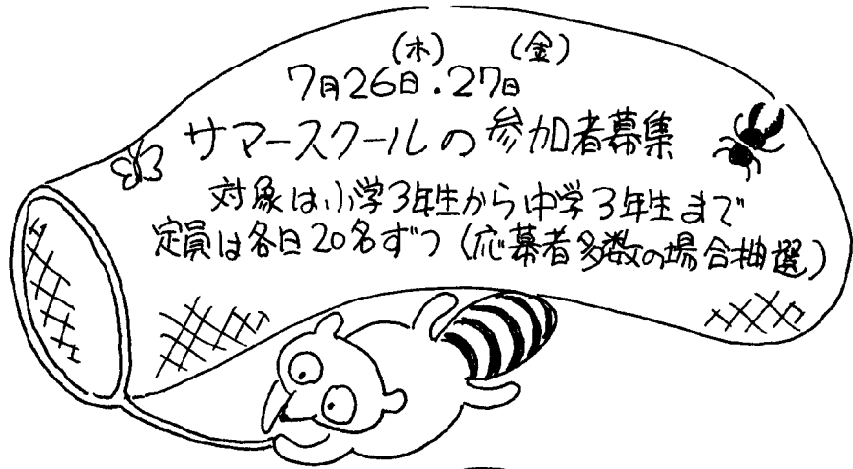 (木) (金)
7月26日・27日
サマースクールの参加者募集
対象は小学3年生から中学3年生まで
定員は各日20名ずつ(応募者多数の場合抽選)